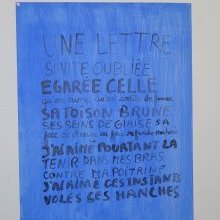 UNE LETTRE
SI VITE OUBLIÉE
EGARÉE CELLE
SA TOISON BRUNE
SES SEINS DE GLAISE SA
J'AI AIMÉ POURTANT LA
TENIR DANS MES BRAS
CONTRE MA POITRINE
J'AI AIMÉ CES INSTANTS
VOLÉS SES HANCHES